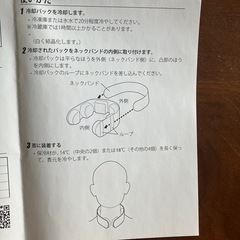 使いかた
1 冷却パックを冷却します。
・冷凍庫または氷水で20分程度冷やしてください。
※冷蔵庫では1時間以上かかることがあります。
(白く結晶化します。)
2 冷却されたパックをネックバンドの内側に取り付けます。
・冷却パックは平らなほうを外側(ネックバンド側)に、凸部のほうを内側にします。
・冷却パックのループにネックバンドを差し込んでください。
ネックバンド
外側
内側
内側
ループ
3 首に装着する
・保冷材が、14℃(中央の2個)または18℃(その他の4個)を長く保って、首元を冷やします。